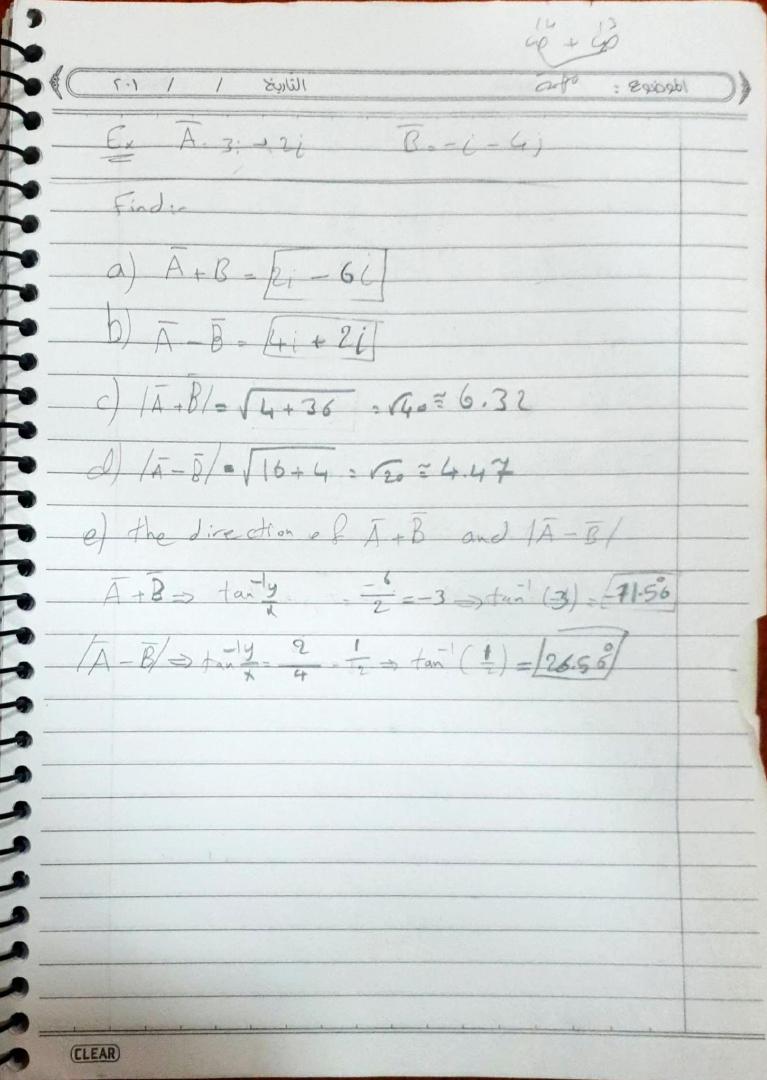 ١٣ص + ١٤ص
الموضوع :
التاريخ / / ٢٠١
Ex Ā = 3i - 2j B̄ = -i - 4j
Find:-
a) Ā + B = 2i - 6j
b) Ā - B̄ = 4i + 2j
c) |Ā + B̄| = √4 + 36 = √40 ≅ 6.32
d) |Ā - B̄| = √16 + 4 = √20 ≅ 4.47
e) the direction of Ā + B̄ and |Ā - B̄|
Ā + B̄ ⇒ tan⁻¹ y/x = -6/2 = -3 ⇒ tan⁻¹ (-3) = -71.56°
|Ā - B̄| ⇒ tan⁻¹ y/x = 2/4 = 1/2 ⇒ tan⁻¹ (1/2) = 26.56°
CLEAR